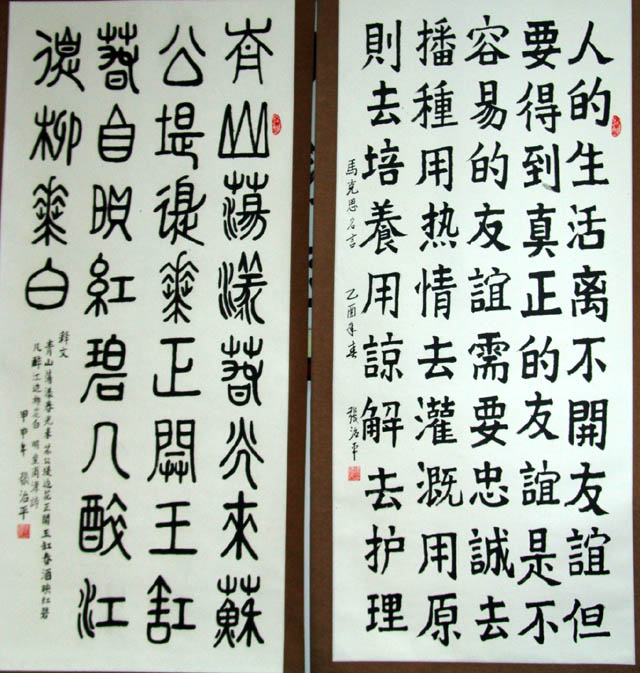 人的生活离不開友誼但
要得到真正的友誼是不
容易的友誼需要忠誠去
播種用热情去灌溉用原
則去培養用諒解去护理
馬克思名言 乙酉年春 張治平
青山蕩漾春光來蘇
公堤邊華正開玉缸
春自映紅碧几醉江
邊柳華白
释文
青山蕩漾春光來 苏公堤边花正開 玉缸春酒映红碧
几醉江边柳花白 明皇甫涍詩
甲申年 張治平